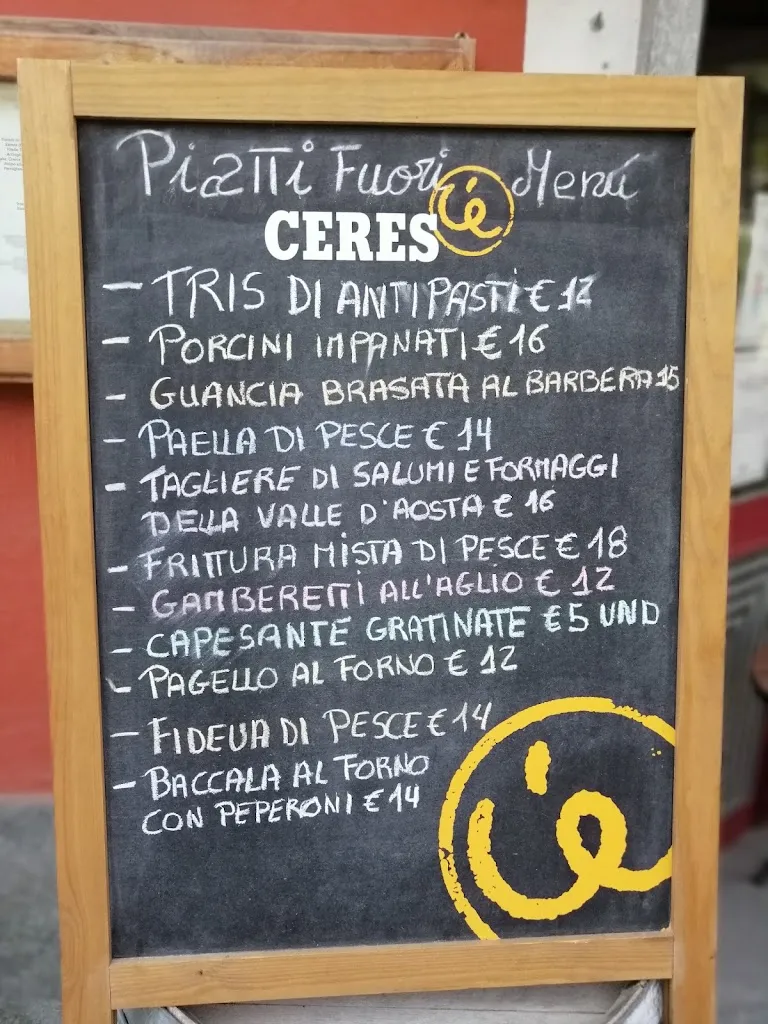 Piatti Fuori Menú
CERES
- TRIS DI ANTIPASTI € 12
- PORCINI IMPANATI € 16
- GUANCIA BRASATA AL BARBERA 15
- PAELLA DI PESCE € 14
- TAGLIERE DI SALUMI E FORMAGGI
DELLA VALLE D'AOSTA € 16
- FRITTURA MISTA DI PESCE € 18
- GAMBERETTI ALL'AGLIO € 12
- CAPESANTE GRATINATE € 5 UNO
- PAGELLO AL FORNO € 12
- FIDEUA DI PESCE € 14
- BACCALA AL FORNO
CON PEPERONI € 14